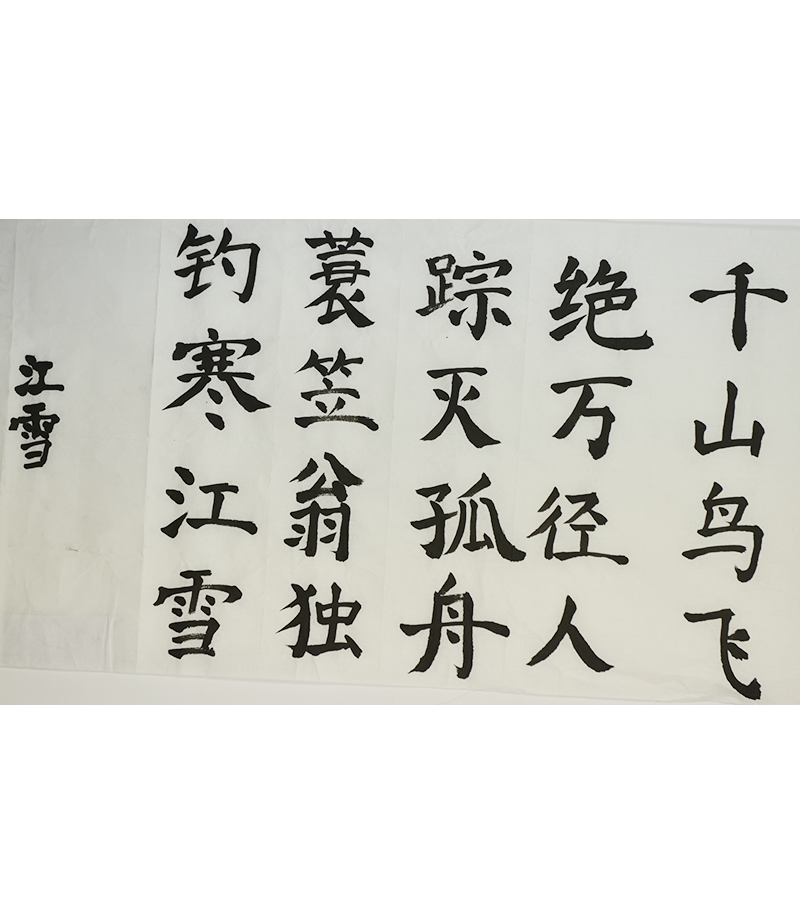 千山鸟飞
绝万径人
踪灭孤舟
蓑笠翁独
钓寒江雪
江雪